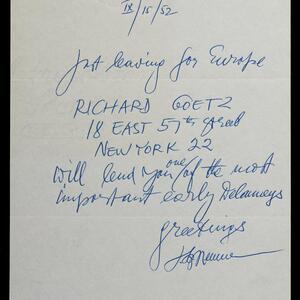 IX/15/52
Just leaving for Europe
RICHARD GOETZ
18 EAST 57th Street
NEW YORK 22
will lend you one of the most
important early Delaunays
greetings